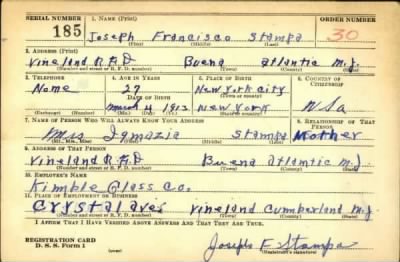 SERIAL NUMBER 1. NAME (Print) ORDER NUMBER
185 Joseph Francisco Stampa 30
(First) (Middle) (Last)
2. ADDRESS (Print)
Vineland R.F.D Buena Atlantic N.J.
(Number and street or R. F. D. number) (Town) (County) (State)
3. TELEPHONE 4. AGE IN YEARS 5. PLACE OF BIRTH 6. COUNTRY OF CITIZENSHIP
None 27 New York City
DATE OF BIRTH (Town or county)
March 4 1913 New York USa
(Exchange) (Number) (Mo.) (Day) (Yr.) (State or country)
7. NAME OF PERSON WHO WILL ALWAYS KNOW YOUR ADDRESS 8. RELATIONSHIP OF THAT PERSON
Mrs Ignazia Stampa Mother
(Mr., Mrs., Miss) (First) (Middle) (Last)
9. ADDRESS OF THAT PERSON
Vineland R.F.D Buena Atlantic N.J.
(Number and street or R. F. D. number) (Town) (County) (State)
10. EMPLOYER'S NAME
Kimble Glass Co.
11. PLACE OF EMPLOYMENT OR BUSINESS
Crystal ave Vineland Cumberland N.J
(Number and street or R. F. D. number) (Town) (County) (State)
I AFFIRM THAT I HAVE VERIFIED ABOVE ANSWERS AND THAT THEY ARE TRUE.
REGISTRATION CARD
D. S. S. Form 1 Joseph F Stampa
(Registrant's signature)